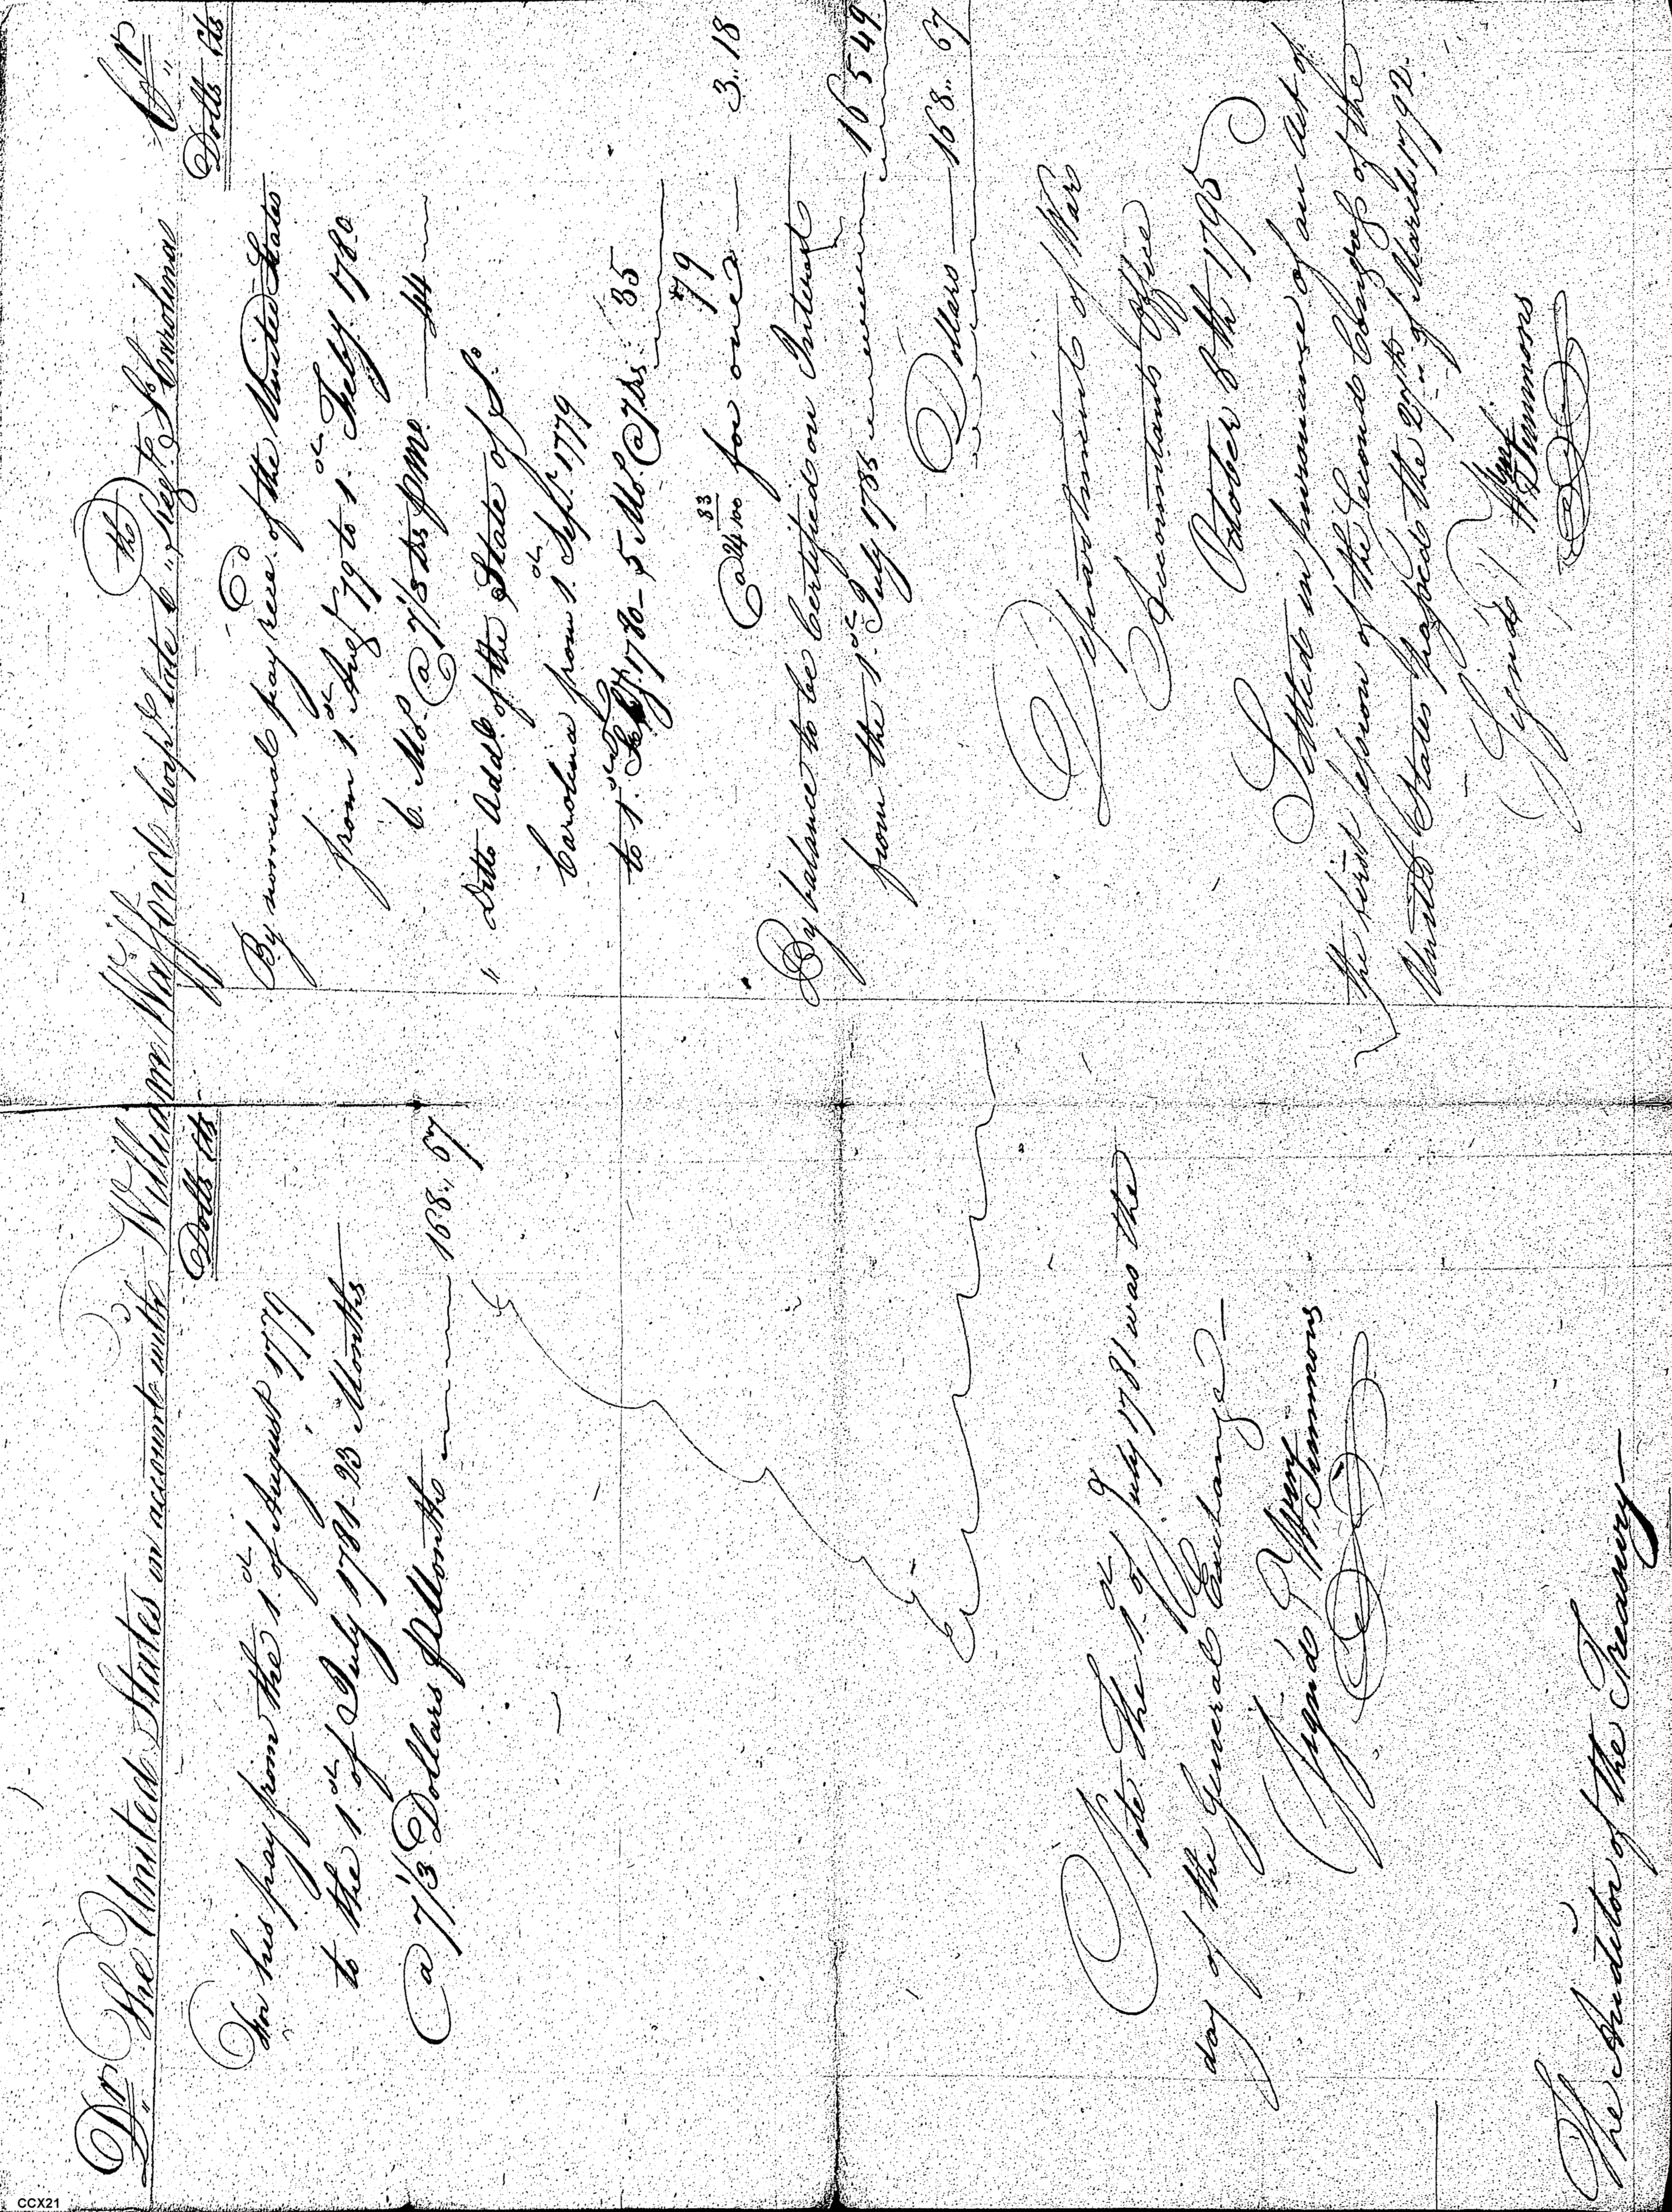 Dr The United States in account with William Wafford Corpl. late 6th Regt. So. Carolina Cr
Dolls Cts
For his pay from the 1st of August 1779
to the 1st of July 1781 - 23 Months
@ 7 1/3 Dollars p Month 168.. 67
Note The 1st of July 1781 was the
day of the General Exchange —
Signed Wm Simmons
The Auditor of the Treasury —
Dolls Cts
By nominal pay recd. of the United States
from 1st Augt. 79 to 1st Feby. 1780
6 Mos. @ 7 1/3 Drs p Mo. — 44
" Ditto Addl. of the State of So.
Carolina from 1st Sepr. 1779
to 1st Feby. 1780 - 5 Mos @ 7 Drs. 35
79
@ 24 83/100 for one — 3.. 18
By balance to be Certified on Interest
from the 1st July 1783 165 49
Dollars — 168.. 67
Department of War
Accountants Office
October 8th 1795
Settled in pursuance of an Act of
the first Session of the Second Congress of the
United States passed the 27th of March 1792.
Signd Wm Simmons
CCX21